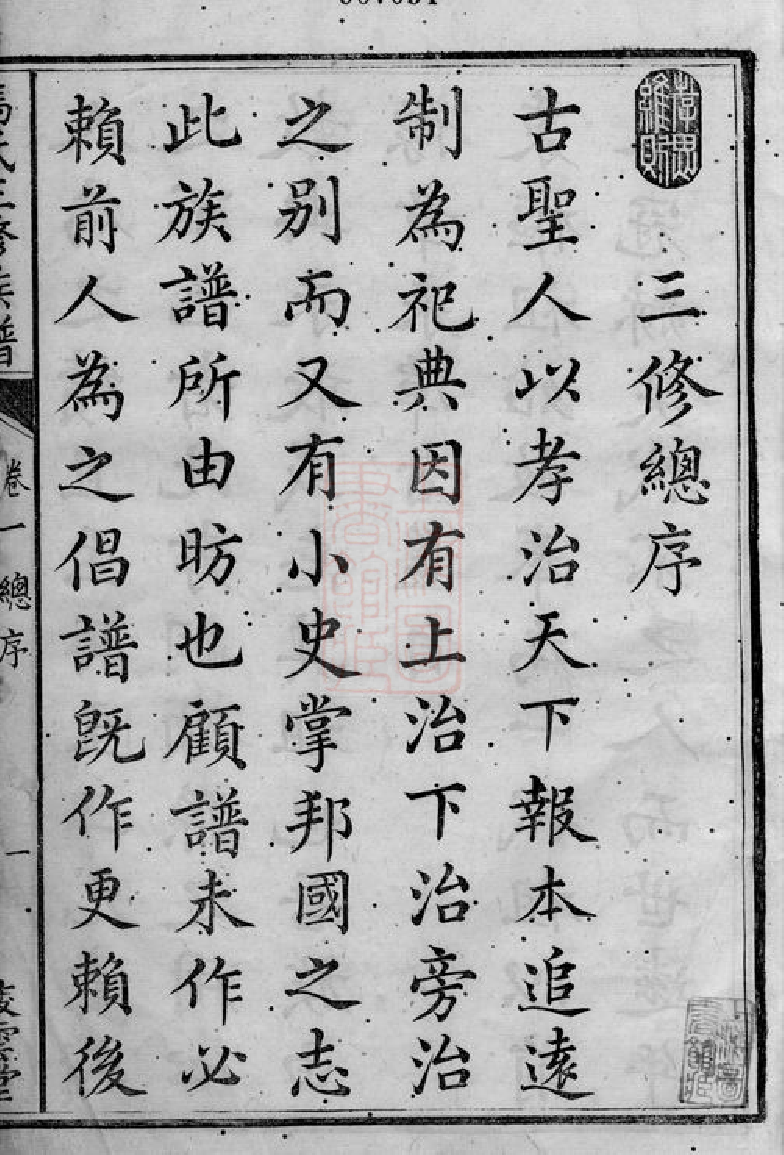 三修總序
古聖人以孝治天下報本追遠
制為祀典因有上治下治旁治
之別而又有小史掌邦國之志
此族譜所由昉也顧譜未作必
賴前人為之倡譜旣作更賴後
氏三修族譜
卷一 總序
一
雲堂